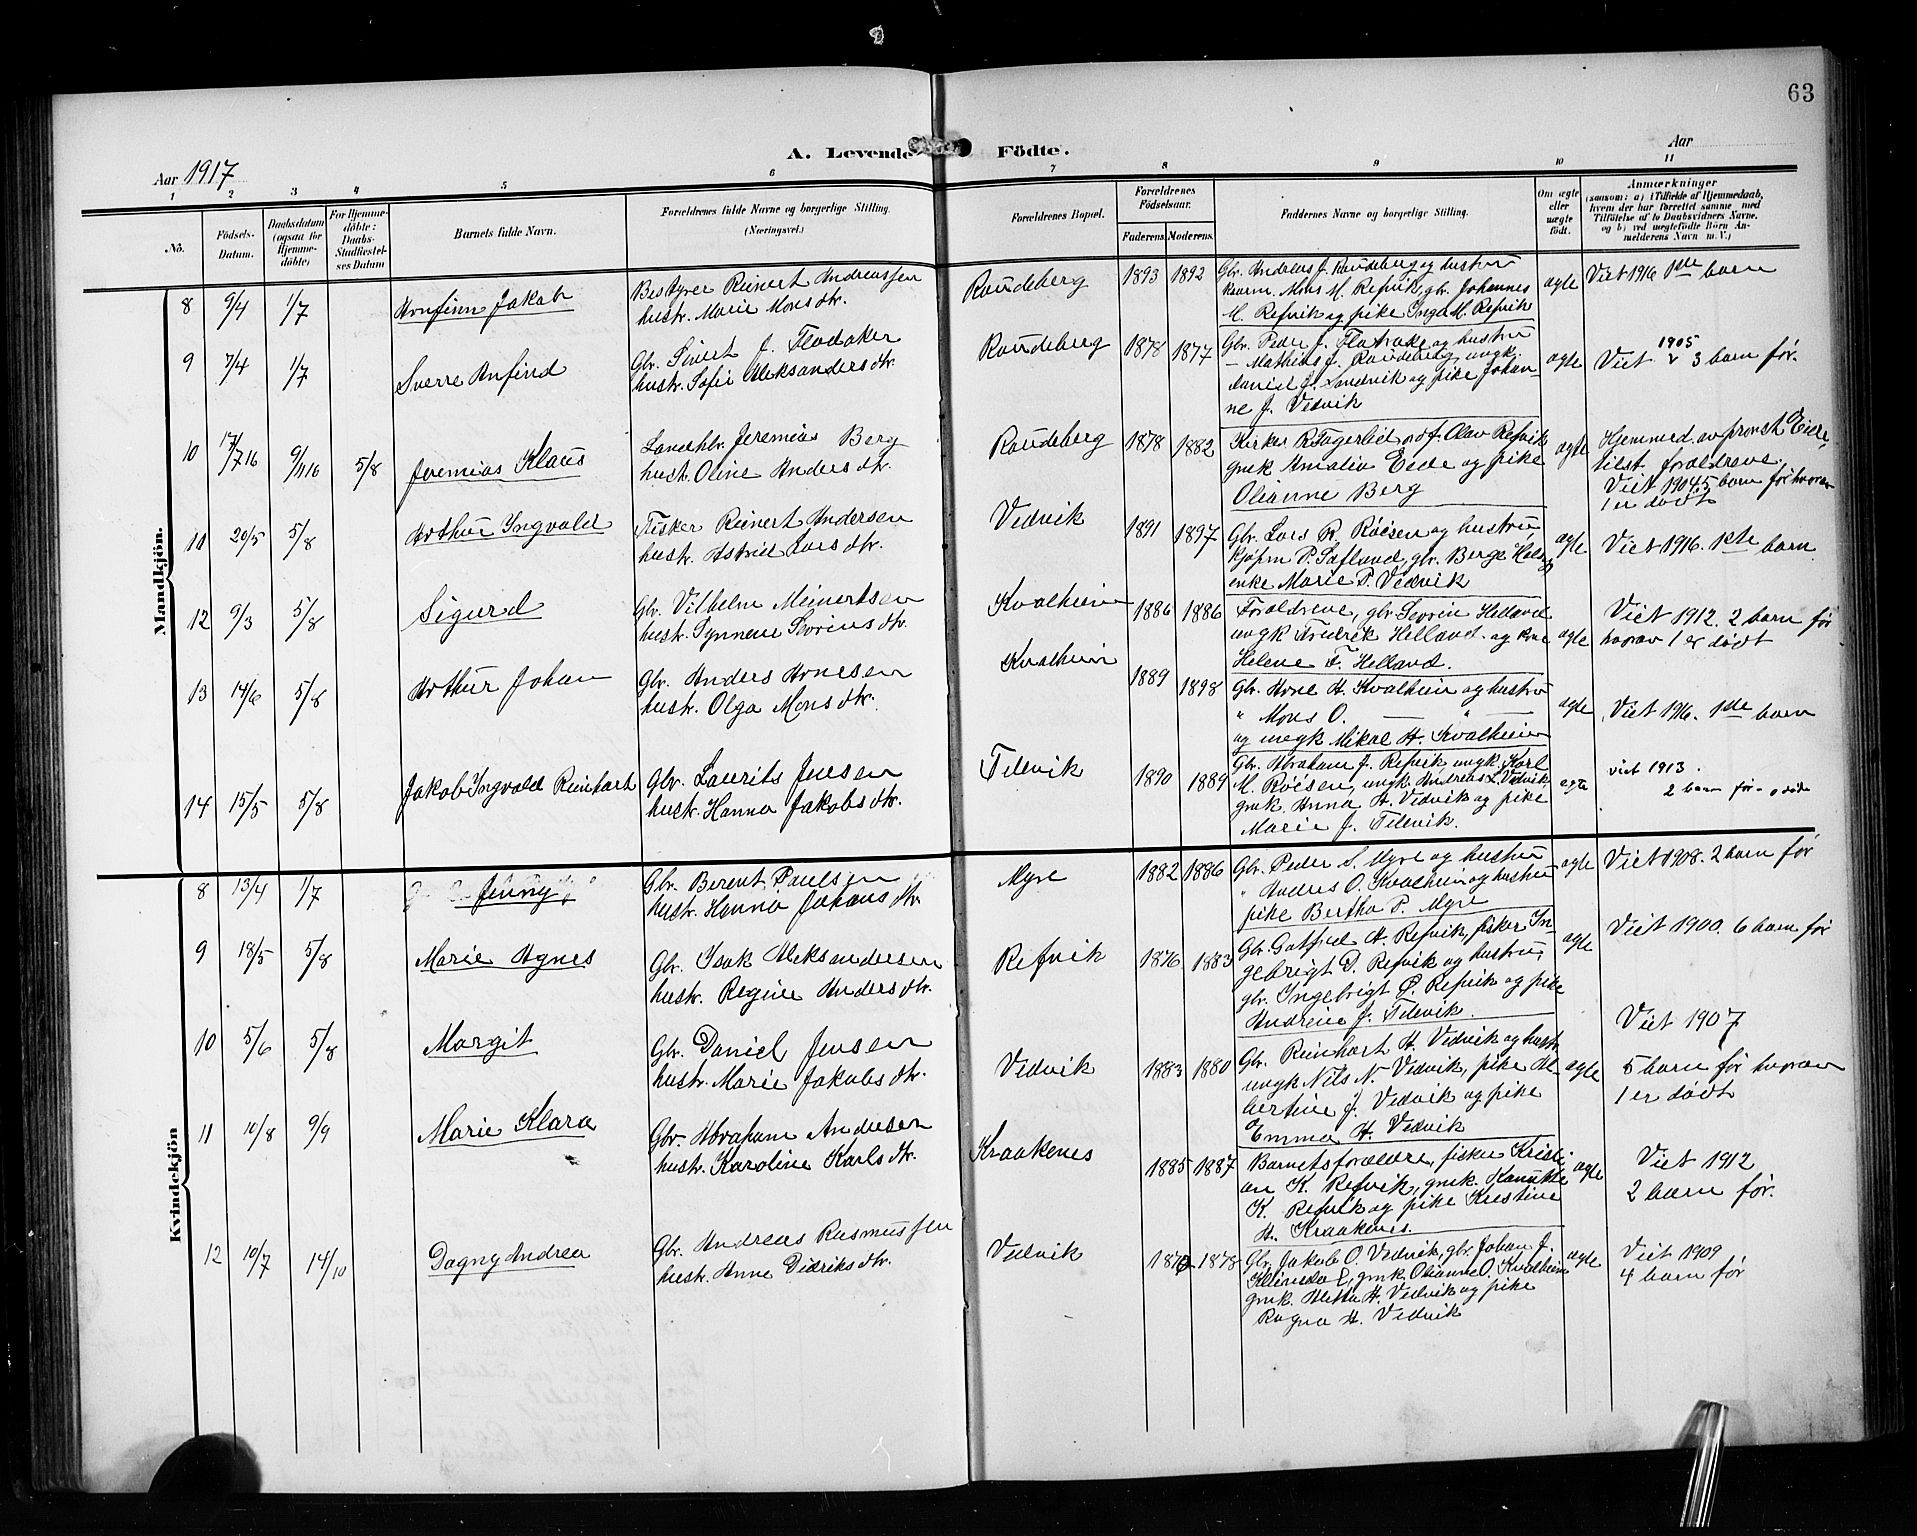 63
A. Levende Födte.
Aar 1917
Aar
1 2 3 4 5 6 7 8 9 10 11
No.
Födsels-Datum.
Daabsdatum (ogsaa for Hjemme-döbte)
For Hjemme-döbte: Daabs-Stadfæstel-ses Datum
Barnets fulde Navn.
Forældrenes fulde Navne og borgerlige Stilling. (Næringsvei.)
Forældrenes Bopæl.
Forældrenes Födselsaar.
Faderens. Moderens.
Faddernes Navne og borgerlige Stilling.
Om ægte eller uægte födt.
Anmærkninger
(saasom: a) i Tilfælde af Hjemmedaab,
hvem der har forrettet samme med
Tilföielse af to Daabsvidners Navne.
og b) ved uegtefödte Börn An-
melderens Navn m. V.)
Mandkjön.
8 9/4 1/7 Arnfinn Jakob
Bestyrer Reinert Andreassen
hustr. Marie Monsdtr.
Raudeberg 1893 1892
Gbr. Andreas J. Raudeberg og hustru
Kaarm. Mons M. Refvik, gbr. Johannes
M. Refvik og pike Inga M. Refvik
egte Viet 1916 1ste barn
9 7/4 1/7 Sverre Anfind
Gbr. Sivert J. Flodaker
hustr. Sofie Aleksandersdtr.
Raudeberg 1878 1877
Gbr. Peder J. Flatrake og hustru
— Mathias J. Raudeberg, ungk.
Daniel J. Sandvik og pike Johan-
ne J. Vedvik
egte 1905
Viet 3 barn før.
10 17/7 16 9/11 16 5/8 Jeremias Klaus
Landhbr. Jeremias Berg
hustr. Oline Andersdtr.
Raudeberg 1878 1882
Kirkes. R. Fagerlid, ordf. Olav Refvik
gmk Amalia Eide og pike
Olianne Berg
egte Hjemmed. av pronst Eide,
tilst. foreldrene.
Viet 1904. 5 barn før hvorav
1 er dødt
11 20/5 5/8 Arthur Ingvald
Fisker Reinert Andersen
hustr. Astrid Larsdtr.
Vedvik 1891 1897
Gbr. Lars R. Røisen og hustru,
kjøpm P. Sæfland, gbr. Berge
enke Marie P. Vedvik
egte Viet 1916. 1ste barn
12 9/3 5/8 Sigurd
Gbr. Vilhelm Meinertsen
hustr. Synneve Severinsdtr.
Kvalheim 1886 1886
Foreldrene, gbr Severin Helland
ungk Fredrik Helland og kone
Helene F. Helland.
egte Viet 1912. 2 barn før
hvorav 1 er dødt
13 14/6 5/8 Arthur Johan
Gbr. Anders Arnesen
hustr. Olga Monsdtr.
Kvalheim 1889 1898
Gbr. Arne A. Kvalheim og hustru
" Mons O. — " —
og ungk Mikal A. Kvalheim
egte Viet 1916. 1ste barn
14 15/5 5/8 Jakob Ingvald Reinhart
Gbr. Laurits Jensen
hustr. Hanna Jakobsdtr.
Tilevik 1890 1889
Gbr. Abraham J. Refvik ungk. Karl
M. Røisen, ungk. Andreas L. Vedvik,
gmk. Anna A. Vedvik og pike
Marie J. Tilevik.
egte viet 1913.
2 barn før - 0 døde
Kvindekjön
8 13/4 1/7 Jenny
Gbr. Berent Paulsen
hustr. Hanna Johansdtr.
Myre 1882 1886
Gbr. Peder S. Myre og hustru
" Anders O. Kvalheim og hustru
pike Bertha P. Myre
egte Viet 1908. 2 barn før
9 18/5 5/8 Marie Agnes
Gbr. Isak Aleksandersen
hustr. Regine Andersdtr.
Refvik 1876 1883
Gbr. Gotfred A. Refvik, fisker In-
gebrigt D. Refvik og hustru,
gbr. Ingebrigt P. Refvik og pike
Andrine J. Tilevik.
egte Viet 1900. 6 barn før
10 5/6 5/8 Margit
Gbr. Daniel Jensen
hustr. Marie Jakobsdtr.
Vedvik 1883 1880
Gbr. Reinhart A. Vedvik og hustr.
ungk Nils N. Vedvik, pike Al-
bertine J. Vedvik og pike
Emma A. Vedvik
egte Viet 1907
5 barn før hvorav
1 er dødt
11 10/8 9/9 Marie Klara
Gbr. Abraham Andersen
hustr. Karoline Karlsdtr.
Kraakenes 1885 1887
Barnets foreldre, fisker Kristi-
an K. Refvik, gmk.
K. Refvik og pike Kristine
A. Kraakenes.
egte Viet 1912
2 barn før.
12 10/7 14/10 Dagny Andrea
Gbr. Andreas Rasmussen
hustr. Anne Didriksdtr.
Vedvik 1878
Gbr. Jakob O. Vedvik, gbr. Johan J.
gmk. Olianne O. Kvalheim
gmk. Aletta A. Vedvik og pike
Ragna A. Vedvik
egte Viet 1909
4 barn før